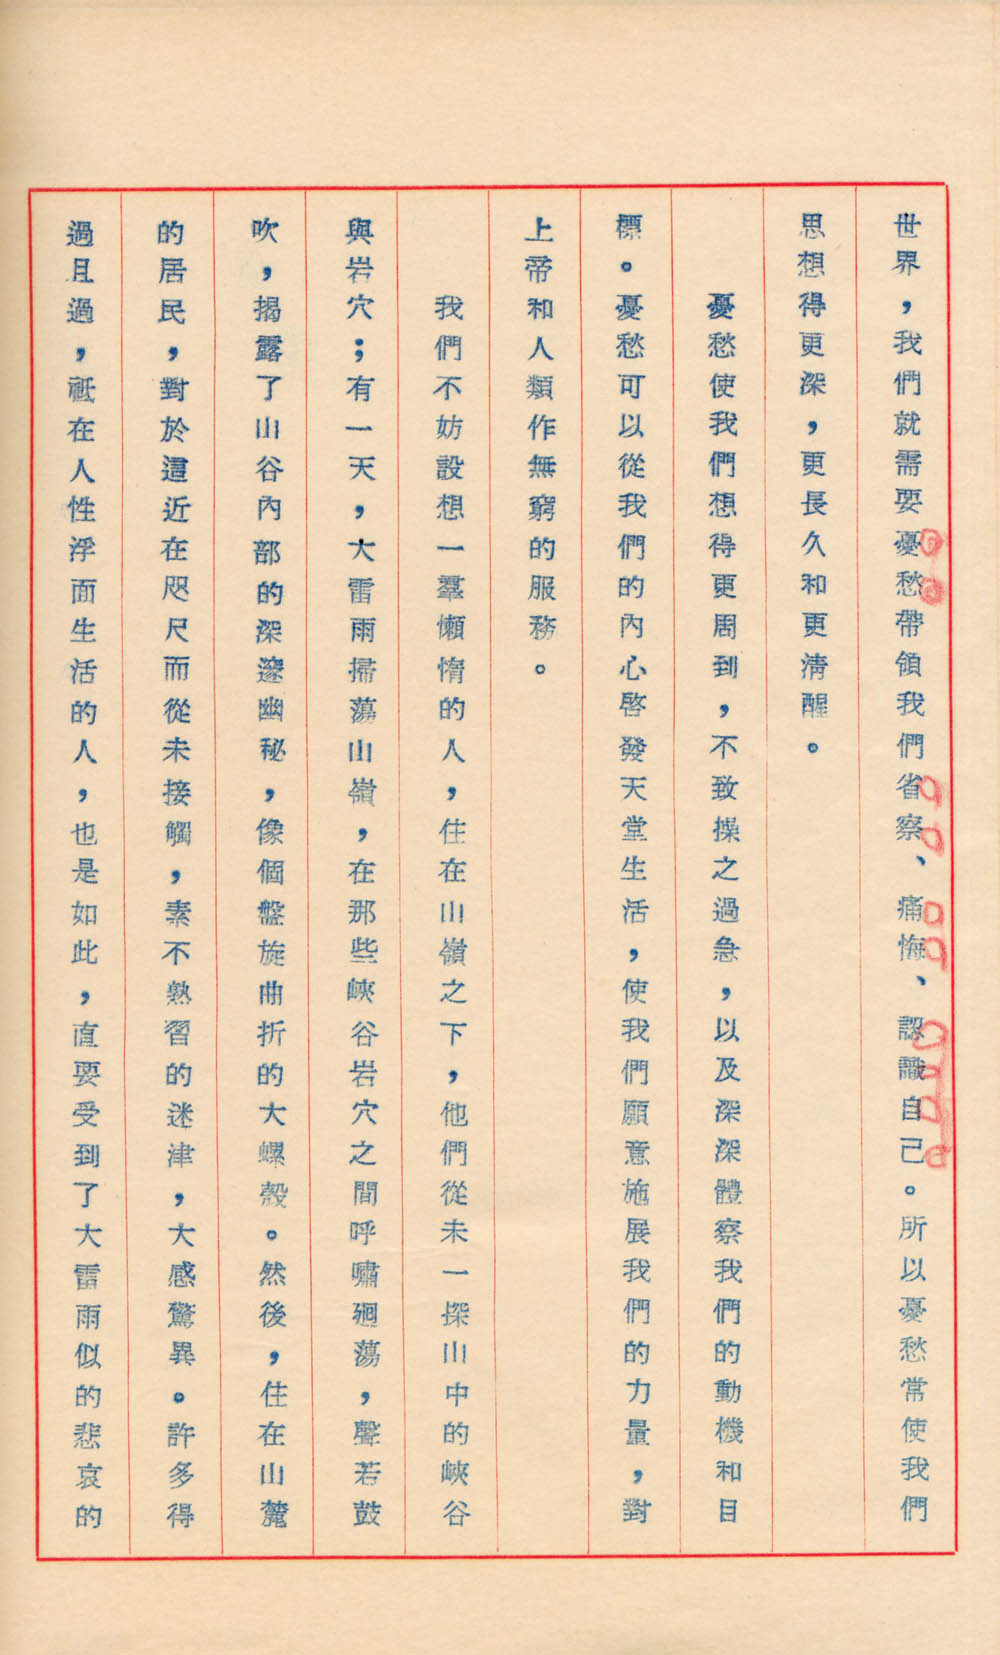 世界，我們就需要憂愁帶領我們省察、痛悔、認識自己。所以憂愁常使我們
思想得更深，更長久和更清醒。
憂愁使我們想得更周到，不致操之過急，以及深深體察我們的動機和目
標。憂愁可以從我們的內心啓發天堂生活，使我們願意施展我們的力量，對
上帝和人類作無窮的服務。
我們不妨設想一羣懶惰的人，住在山嶺之下，他們從未一探山中的峽谷
與岩穴；有一天，大雷雨掃蕩山嶺，在那些峽谷岩穴之間呼嘯廻蕩，聲若鼓
吹，揭露了山谷內部的深邃幽秘，像個盤旋曲折的大螺殼。然後，住在山麓
的居民，對於這近在咫尺而從未接觸，素不熟習的迷津，大感驚異。許多得
過且過，祇在人性浮面生活的人，也是如此，直要受到了大雷雨似的悲哀的